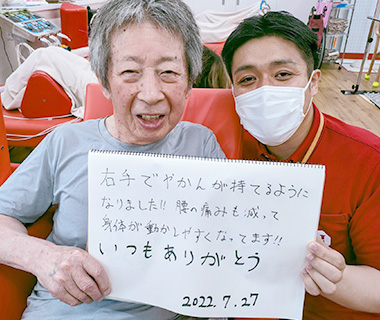 右手でやかんが持てるように
なりました!! 腰の痛みも減って
身体が動かしやすくなってます!!
いつもありがとう
2022.7.27